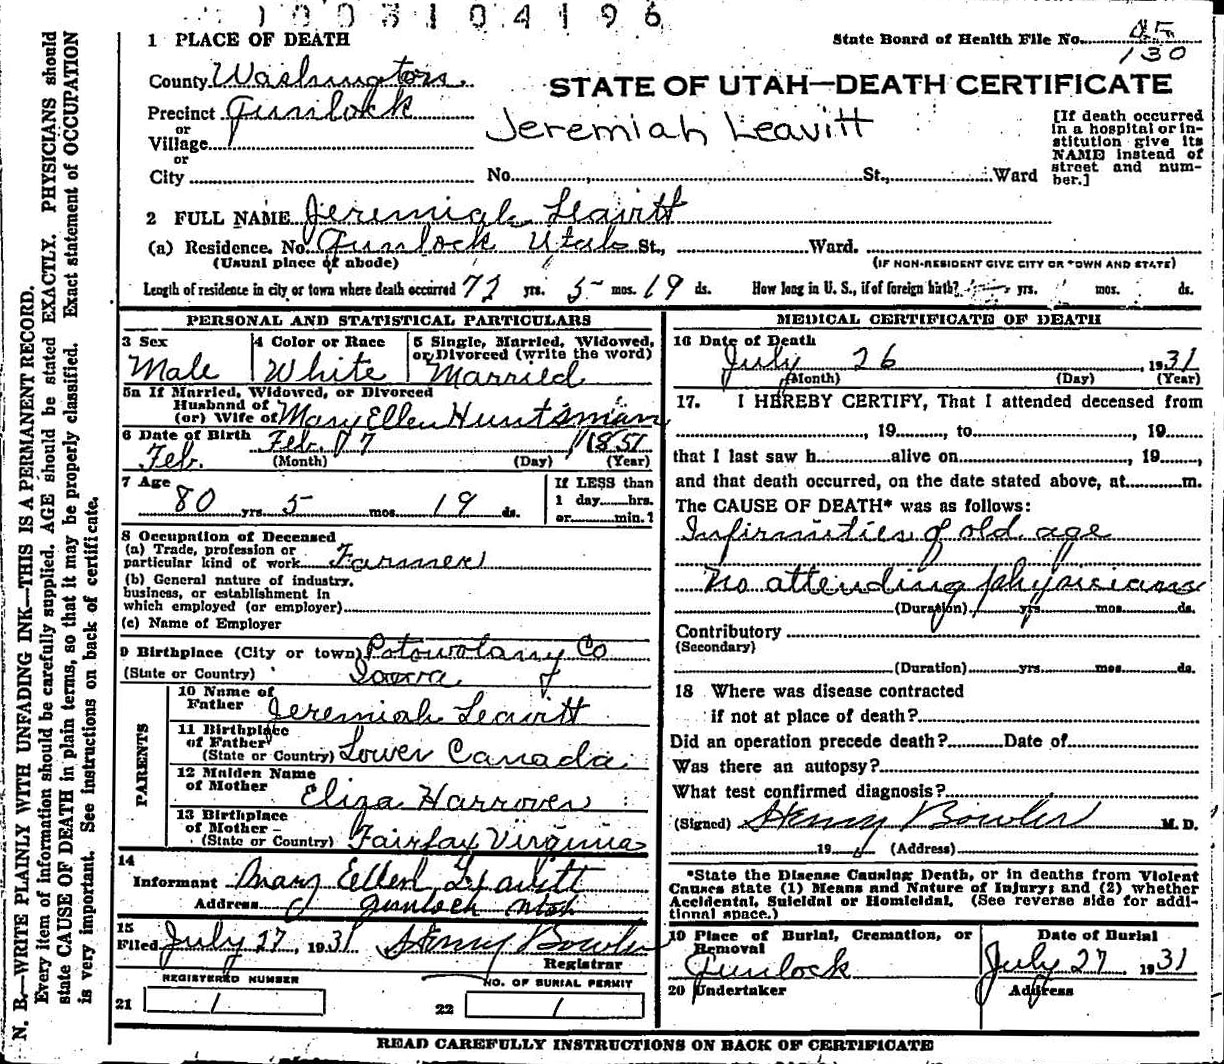 1003104196
1 PLACE OF DEATH
State Board of Health File No. 45
130
County Washington
STATE OF UTAH—DEATH CERTIFICATE
Precinct Gunlock
or
Village
or
City
Jeremiah Leavitt
No. St., Ward
[If death occurred
in a hospital or in-
stitution give its
NAME instead of
street and num-
ber.]
2 FULL NAME Jeremiah Leavitt
(a) Residence. No. Gunlock Utah St., Ward.
(Usual place of abode)
(IF NON-RESIDENT GIVE CITY OR TOWN AND STATE)
Length of residence in city or town where death occurred 72 yrs. 5 mos. 19 ds. How long in U. S., if of foreign birth? yrs. mos. ds.
PERSONAL AND STATISTICAL PARTICULARS
3 Sex
Male
4 Color or Race
White
5 Single, Married, Widowed,
or Divorced (write the word)
Married
5a If Married, Widowed, or Divorced
Husband of
(or) Wife of Mary Ellen Huntsman
6 Date of Birth Feb. 7 1851
Feb. (Month) (Day) (Year)
7 Age
80 yrs. 5 mos. 19 ds.
If LESS than
1 day hrs.
or min.?
8 Occupation of Deceased
(a) Trade, profession or
particular kind of work Farmer
(b) General nature of industry.
business, or establishment in
which employed (or employer)
(c) Name of Employer
9 Birthplace (City or town) Potowotamy Co
(State or Country) Iowa
PARENTS
10 Name of
Father Jeremiah Leavitt
11 Birthplace
of Father
(State or Country) Lower Canada
12 Maiden Name
of Mother Eliza Harrover
13 Birthplace
of Mother
(State or Country) Fairfax Virginia
14
Informant Mary Ellen Leavitt
Address Gunlock Utah
15
Filed July 27, 1931 Henry Bowler
Registrar
REGISTERED NUMBER
21 1
NO. OF BURIAL PERMIT
22 1
MEDICAL CERTIFICATE OF DEATH
16 Date of Death
July 26 1931
(Month) (Day) (Year)
17. I HEREBY CERTIFY, That I attended deceased from
, 19 , to , 19
that I last saw h alive on , 19 ,
and that death occurred, on the date stated above, at m.
The CAUSE OF DEATH* was as follows:
Infirmities of old age
No attending physicians
(Duration) yrs. mos. ds.
Contributory
(Secondary)
(Duration) yrs. mos. ds.
18 Where was disease contracted
if not at place of death?
Did an operation precede death? Date of
Was there an autopsy?
What test confirmed diagnosis?
(Signed) Henry Bowler M. D.
19 (Address)
*State the Disease Causing Death, or in deaths from Violent
Causes state (1) Means and Nature of Injury; and (2) whether
Accidental, Suicidal or Homicidal. (See reverse side for addi-
tional space.)
19 Place of Burial, Cremation, or
Removal
Gunlock
Date of Burial
July 27 1931
20 Undertaker
Address
READ CAREFULLY INSTRUCTIONS ON BACK OF CERTIFICATE
N. B.—WRITE PLAINLY WITH UNFADING INK—THIS IS A PERMANENT RECORD.
Every item of information should be carefully supplied. AGE should be stated EXACTLY. PHYSICIANS should
state CAUSE OF DEATH in plain terms, so that it may be properly classified. Exact statement of OCCUPATION
is very important. See instructions on back of certificate.